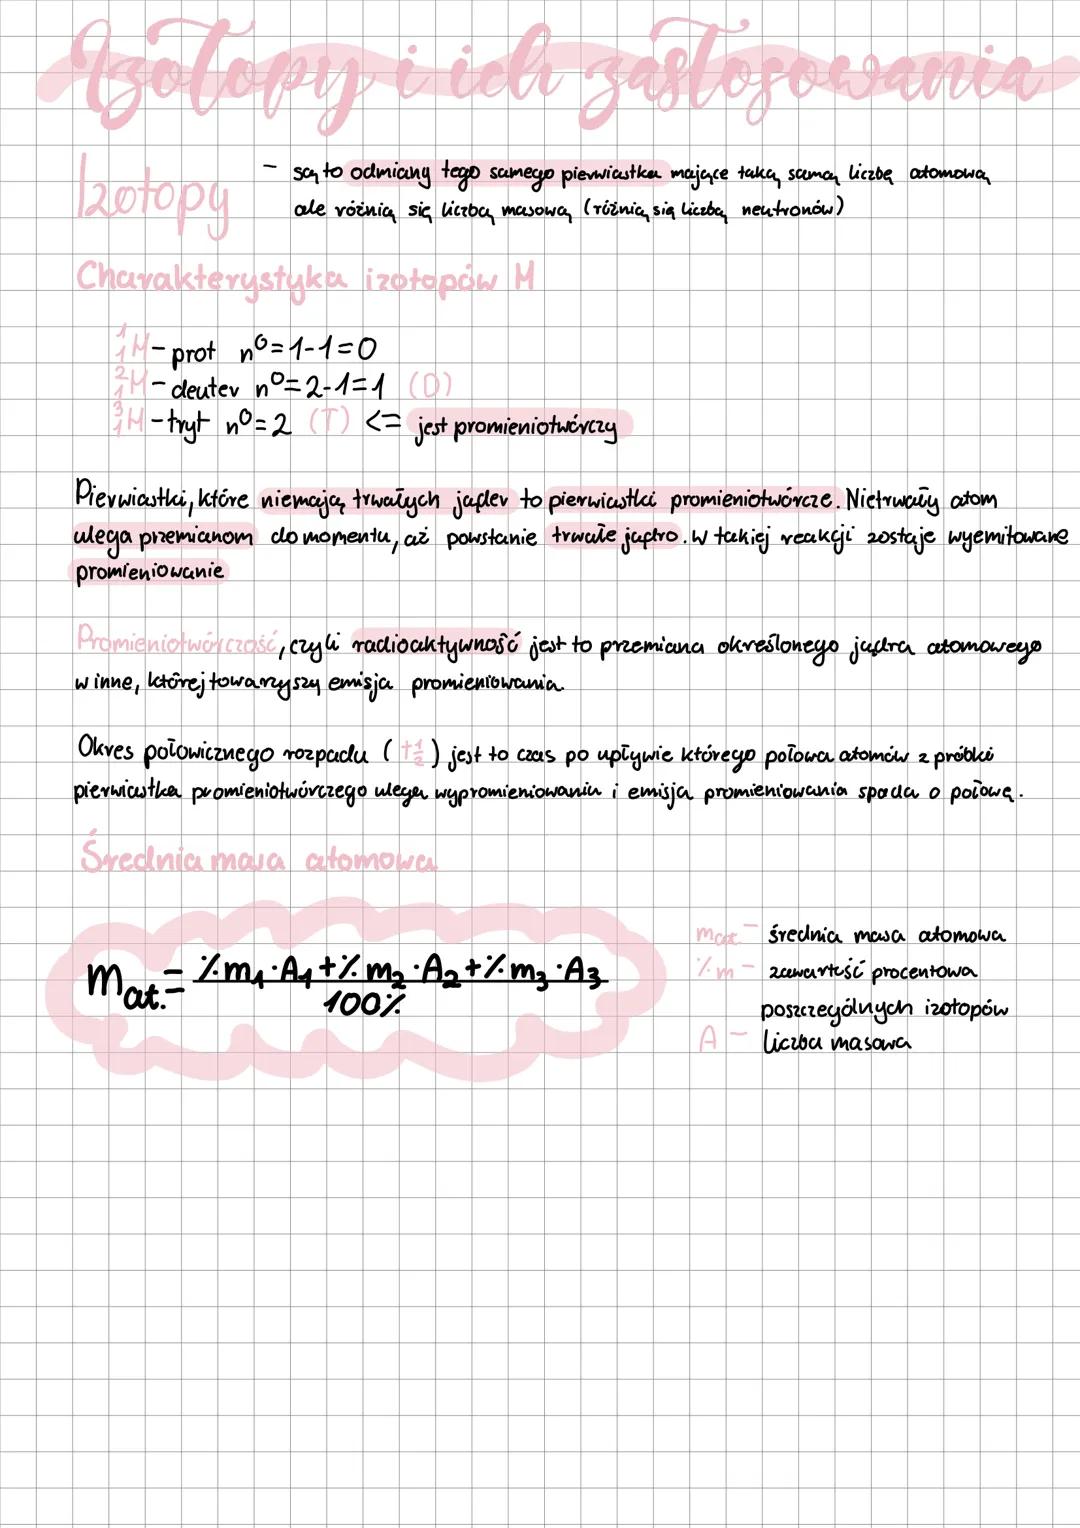 Izotopy i ich zastosowania
Izotopy
- są to odmiany tego samego pierwiastka mające taką samą liczbę atomową
ale różnią się liczbą masową (różnią się liczbą neutronów)
Charakterystyka izotopów H
¹₁H - prot n⁰=1-1=0
²₁H - deuter n⁰=2-1=1 (D)
³₁H - tryt n⁰=2 (T) <= jest promieniotwórczy
Pierwiastki, które niemają trwałych jąder to pierwiastki promieniotwórcze. Nietrwały atom
ulega przemianom do momentu, aż powstanie trwałe jądro. W takiej reakcji zostaje wyemitowane
promieniowanie
Promieniotwórczość, czyli radioaktywność jest to przemiana określonego jądra atomowego
w inne, której towarzyszy emisja promieniowania.
Okres połowicznego rozpadu (t½) jest to czas po upływie którego połowa atomów z próbki
pierwiastka promieniotwórczego ulega wypromieniowaniu i emisja promieniowania spada o połowę.
Średnia masa atomowa
mat. = %m₁·A₁+%m₂·A₂+%m₃·A₃
100%
mat. - średnia masa atomowa
%m - zawartość procentowa
poszczególnych izotopów
A - liczba masowa